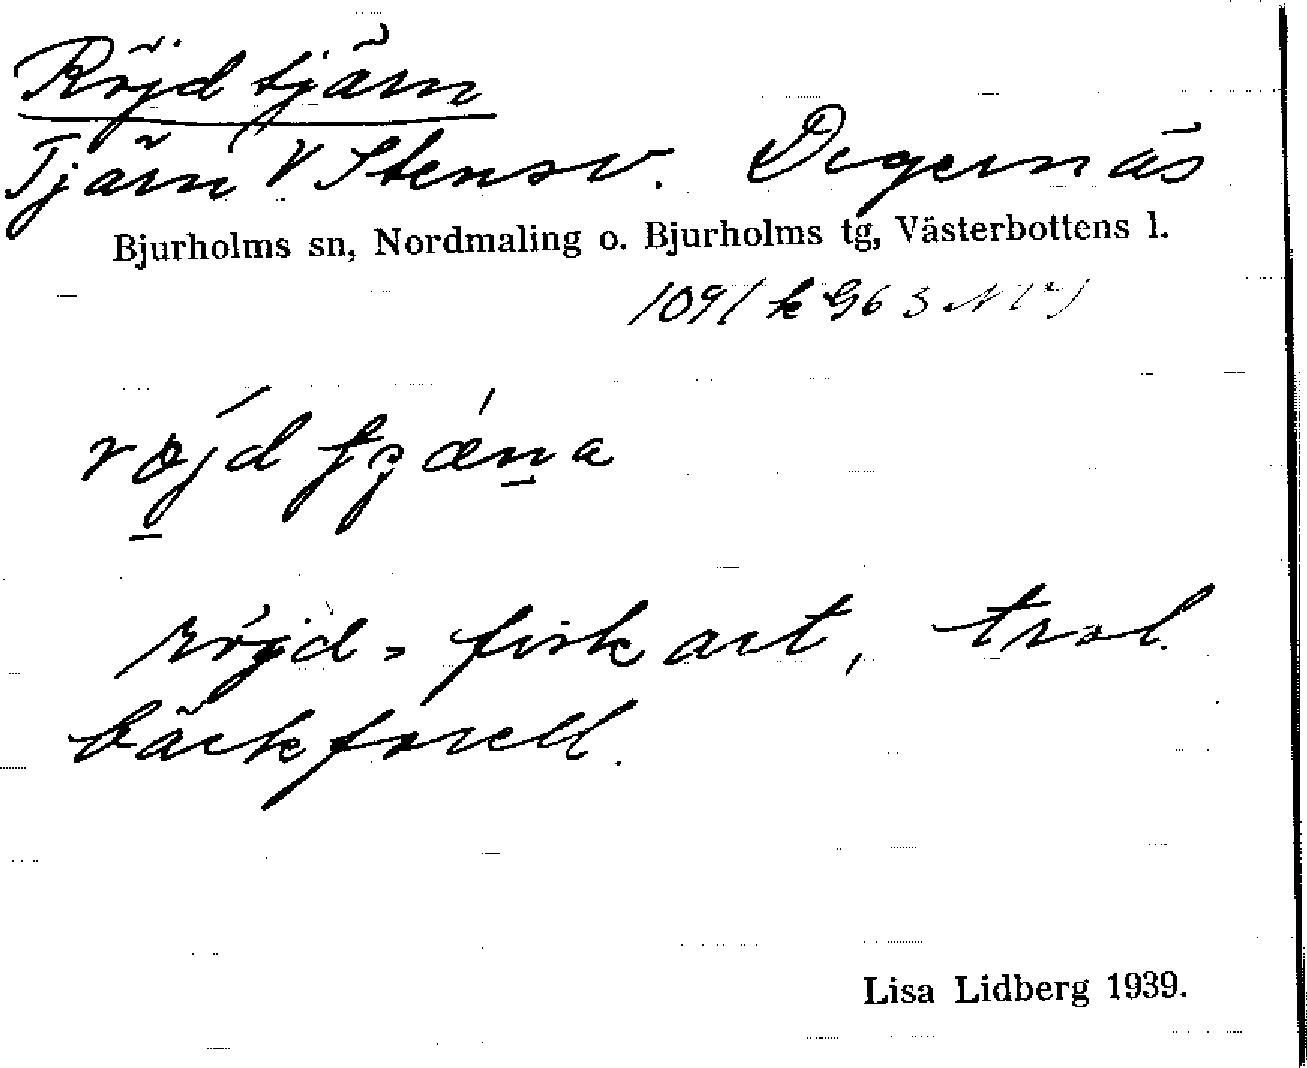 Röjdtjärn
Tjärn V Stensv. Degernäs
Bjurholms sn, Nordmaling o. Bjurholms tg, Västerbottens l.
109/
röjd = fiskart, trol.
bäckforell.
Lisa Lidberg 1939.